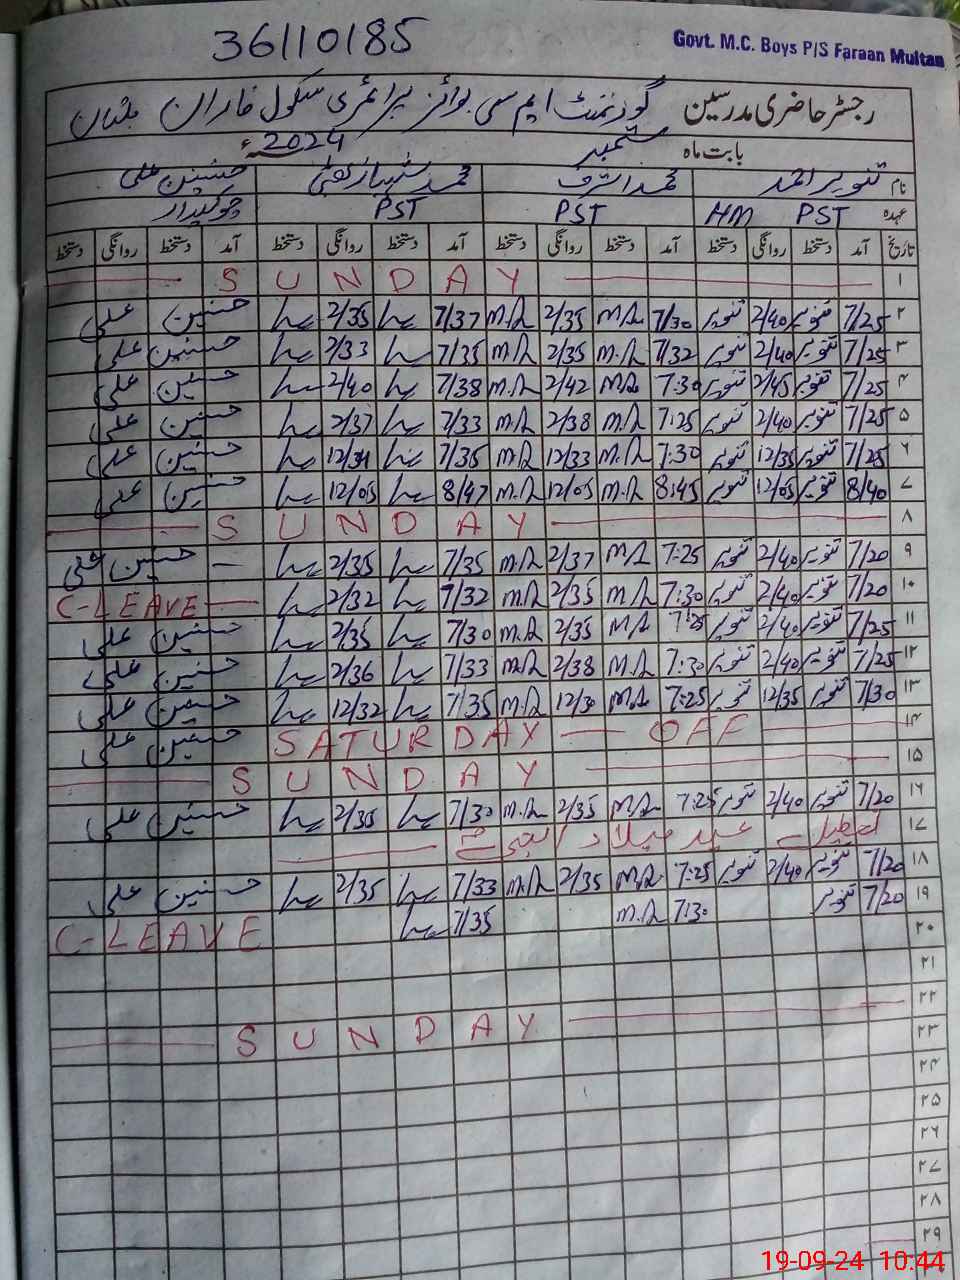 36110185
Govt. M.C. Boys P/S Faraan Multan
رجسٹر حاضری مدرسین گورنمنٹ ایم سی بوائز پرائمری سکول فاران ملتان
بابت ماہ ستمبر 2024ء
نام تنویر احمد محمد اشرف محمد حسنین علی
عہدہ HM PST PST PST چوکیدار
تاریخ آمد دستخط روانگی دستخط آمد دستخط روانگی دستخط آمد دستخط روانگی دستخط آمد دستخط روانگی دستخط
۱ SUNDAY
۲ 7/25 تنویر 2/40 تنویر 7/30 M.A 2/35 M.A 7/37 2/35 حسنین علی
۳ 7/25 تنویر 2/40 تنویر 7/32 M.A 2/35 M.A 7/35 2/33 حسنین علی
۴ 7/25 تنویر 2/45 تنویر 7:30 M.A 2/42 M.A 7/38 2/40 حسنین علی
۵ 7/25 تنویر 2/40 تنویر 7:25 M.A 2/38 M.A 7/33 2/37 حسنین علی
۶ 7/25 تنویر 12/35 تنویر 7:30 M.A 12/33 M.A 7/35 12/34 حسنین علی
۷ 8/40 تنویر 12/05 تنویر 8:45 M.A 12/05 M.A 8/47 12/05 حسنین علی
۸ SUNDAY
۹ 7/20 تنویر 2/40 تنویر 7:25 M.A 2/37 M.A 7/35 2/35 — حسنین علی
۱۰ 7/20 تنویر 2/40 تنویر 7:30 M.A 2/35 M.A 7/32 2/32 C-LEAVE
۱۱ 7/25 تنویر 2/40 تنویر 7:25 M.A 2/35 M.A 7/30 2/35 حسنین علی
۱۲ 7/25 تنویر 2/40 تنویر 7:30 M.A 2/38 M.A 7/33 2/36 حسنین علی
۱۳ 7/30 تنویر 12/35 تنویر 7:25 M.A 12/30 M.A 7/35 12/32 حسنین علی
۱۴ SATURDAY — OFF حسنین علی
۱۵ SUNDAY
۱۶ 7/20 تنویر 2/40 تنویر 7:25 M.A 2/35 M.A 7/30 2/35 حسنین علی
۱۷ تعطیل عید میلاد النبیؐ
۱۸ 7/20 تنویر 2/40 تنویر 7:25 M.A 2/35 M.A 7/33 2/35 حسنین علی
۱۹ 7/20 تنویر 7:30 M.A 7/35 C-LEAVE
۲۰
۲۱
۲۲ SUNDAY
۲۳
۲۴
۲۵
۲۶
۲۷
۲۸
۲۹
19-09-24 10:44